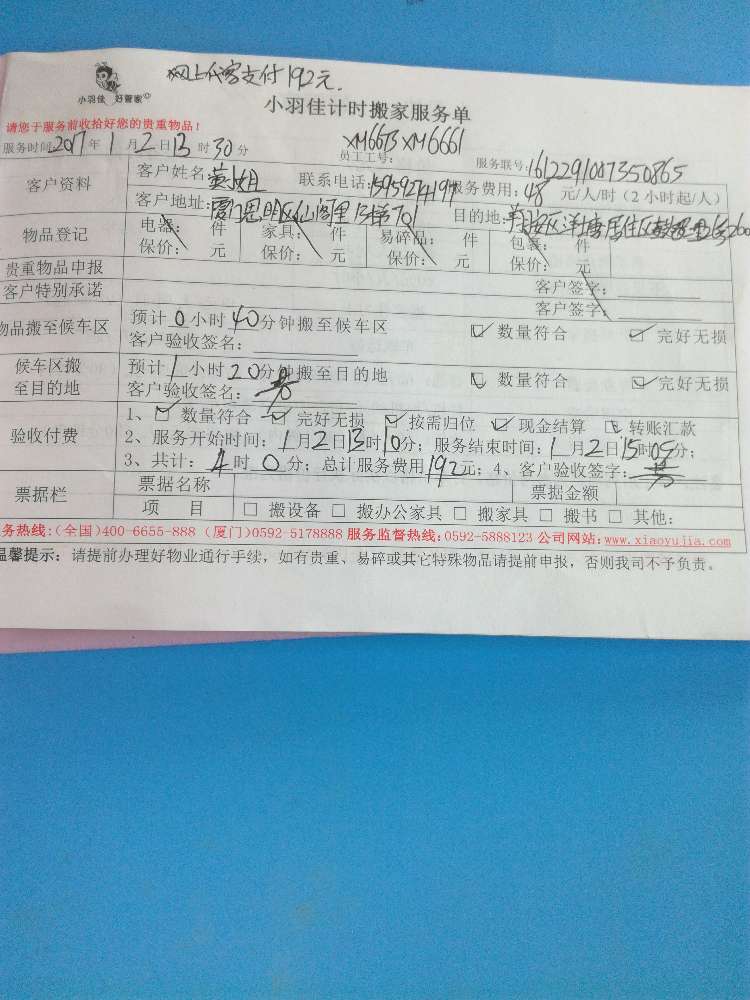 网上代客支付192元.
小羽佳 好管家
小羽佳计时搬家服务单
请您于服务前收拾好您的贵重物品!
服务时间2017年1月2日13时30分 员工工号: XM6673 XM6661 服务联号:161229100735086​5
客户资料 客户姓名:黄小姐 联系电话:15959274197 服务费用:48元/人/时(2小时起/人)
客户地址:厦门思明区仙阁里13梯701 目的地:翔安区洋塘居住区
物品登记 电器: 件 家具: 件 易碎品: 件 包裹: 件
保价: 元 保价: 元 保价: 元 保价: 元
贵重物品申报 客户签字:
客户特别承诺 客户签字:
物品搬至候车区 预计0小时40分钟搬至候车区 ☑ 数量符合 ☑ 完好无损
客户验收签名:
候车区搬至目的地 预计1小时20分钟搬至目的地 ☑ 数量符合 ☑ 完好无损
客户验收签名:
验收付费 1、☑ 数量符合 ☑ 完好无损 ☑ 按需归位 ☑ 现金结算 ☑ 转账汇款
2、服务开始时间:1月2日13时10分; 服务结束时间:1月2日15时09分;
3、共计:4时0分;总计服务费用192元;4、客户验收签字:
票据栏 票据名称 票据金额
项 目 □ 搬设备 □ 搬办公家具 □ 搬家具 □ 搬书 □ 其他:
务热线:(全国)400-6655-888 (厦门)0592-5178888 服务监督热线:0592-5888123 公司网站:www.xiaoyujia.com
温馨提示:请提前办理好物业通行手续,如有贵重、易碎或其它特殊物品请提前申报,否则我司不予负责。